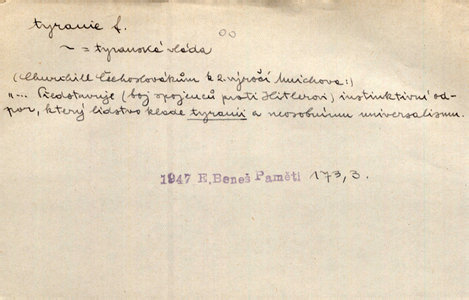 tyranie f.
~ = tyranská vláda
(Churchill Čechoslovákům k 2. výročí Mnichova:)
"... Představuje (boj spojenců proti Hitlerovi) instinktivní od-
por, který lidstvo klade tyranii a neosobnímu universalismu.
1947 E. Beneš Paměti 173,3.